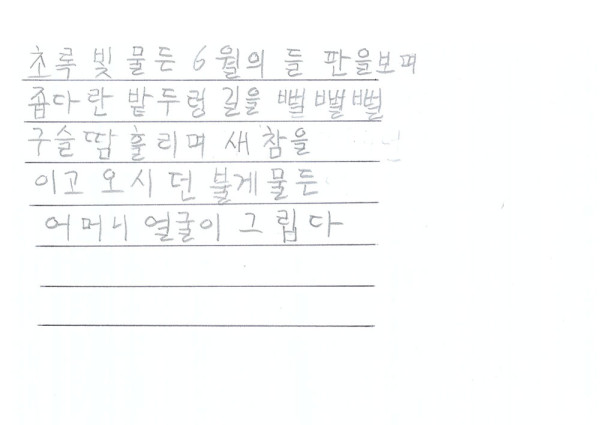 초록빛 물든 6월의 들판을보며
좁다란 밭두렁 길을 뻘뻘뻘
구슬땀 흘리며 새참을
이고 오시던 붉게물든
어머니 얼굴이 그립다